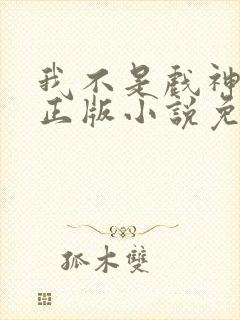 我不是戲神
正版小說免
孤木雙